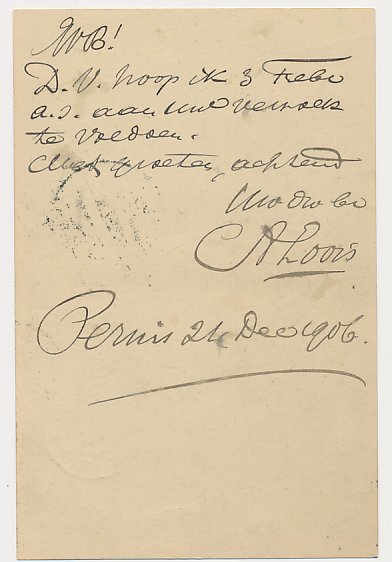 WB!
D. V. hoop ik 3 Febr
a.s. aan Uw verzoek
te voldoen.
Met groeten, achtend
Uw dw br
A Loois
Pernis 24 Dec 1906.